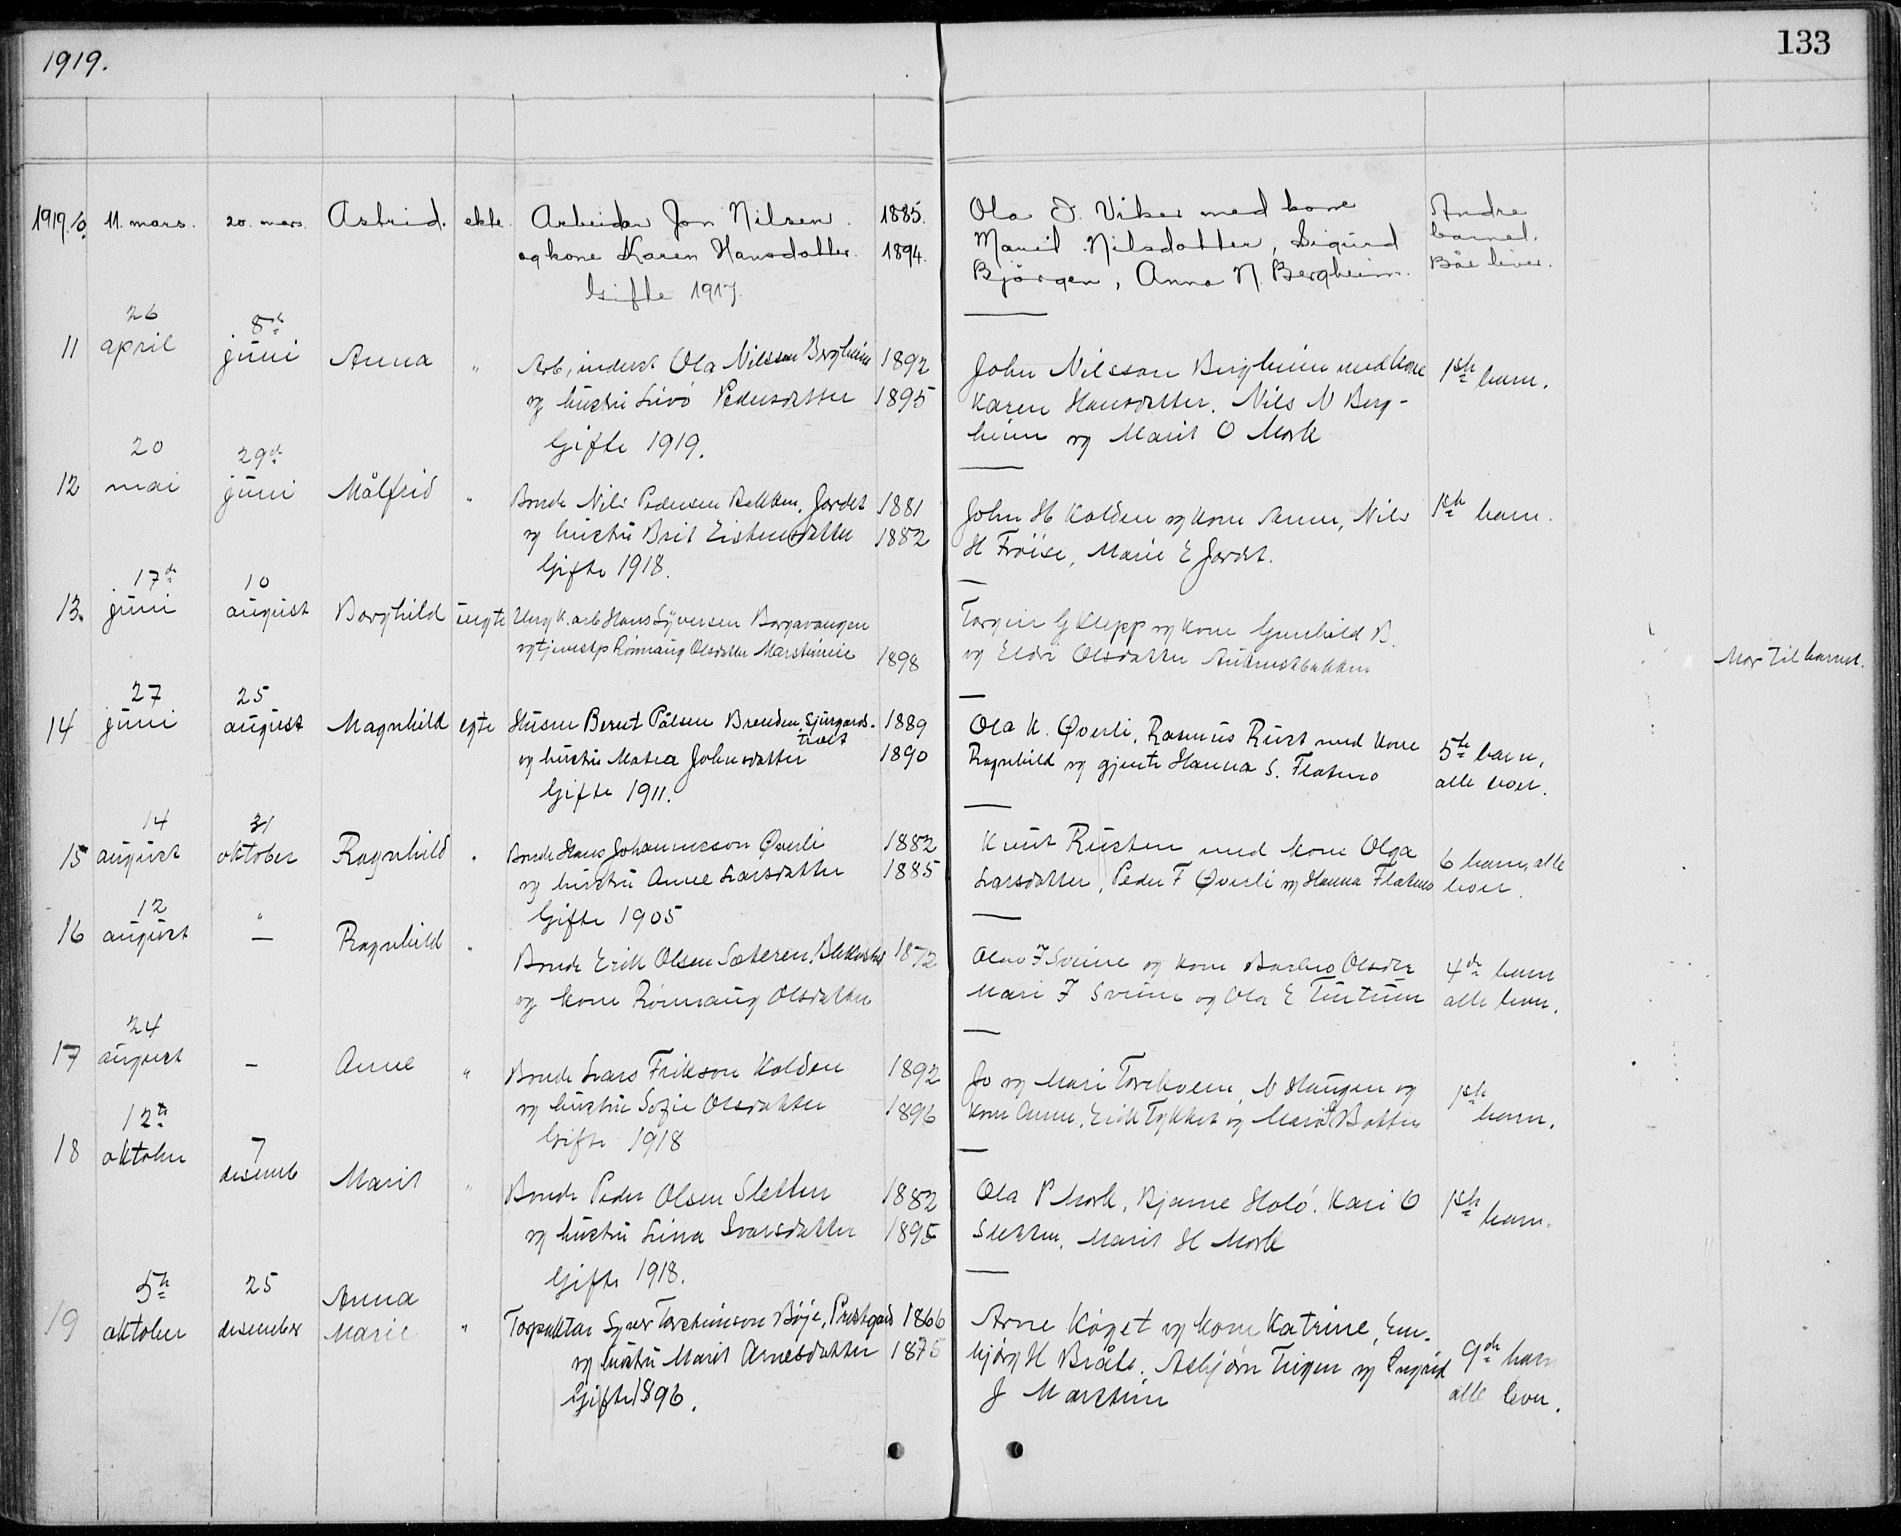 1919.
133
1919. 10. 11. mars. 20. mars. Astrid. ekte. Arbeider Jon Nilsen. 1885.
og kone Karen Hansdotter. 1894.
Gifte 1917.
Ola J. Viker med kone
Marit Nilsdotter, Sigurd
Bjørgen, Anna N. Bergheim.
Andre
barnet.
Båe lever.
11 26 april 8de juni Anna " Arb, inderst Ola Nilsson Bergheim 1892
og hustru Livö Pedersdatter 1895
Gifte 1919.
John Nilsson Bergheim med kone
Karen Hansdatter. Nils N Berg-
heim og Marit O Mork
1ste barn.
12 20 mai 29de juni Målfrid " Bonde Nils Pedersen Bakken, Jordet 1881
og hustru Brit Eistensdatter 1882
Gifte 1918.
John H Kolden og kone Anne, Nils
H Frøise, Marie E Jordet.
1ste barn.
13. 17de juni 10 august Borghild uegte Ung k. arb Hans Syversen Borgavangen
og tjenestp Rønnaug Olsdatter Marstein 1898
Torgeir G Klepp og kone Gunhild B.
og Eldri Olsdatter
Mor til barnet.
14 27 juni 25 august Magnhild egte Husm Bernt Pålsen Brenden, Sjurgards- 1889
trøet
og hustru Matea Johnsdatter 1890
Gifte 1911.
Ola K. Øverli, Rasmus Rust med kone
Ragnhild og gjente Hanna S. Flatmo
5te barn,
alle lever.
15 14 august 31 oktober Ragnhild " Bonde Hans Johannesson Øverli 1882
og hustru Anne Larsdatter 1885
Gifte 1905
Knut Rusten med kone Olga
Larsdatter, Peder F Øverli og Hanna Flatmo
6 barn, alle
lever.
16 12 august " — Ragnhild " Bonde Erik Olsen Sæteren, 1872
og kone Rønnaug Olsdatter
Olav F Sveine og kone Barbro Olsdtr
Mari F Sveine og Ola E Tuntrun
4de barn
alle lever.
17 24 august — Anne " Bonde Lars Frikson Kolden 1892
og hustru Sofie Olsdatter 1896
Gifte 1918
Jo og Mari Torehoem, N Haugen og
kone Anne, Erik Tykket og Mari Botten
1ste
barn.
18 12te oktober 7 desemb Marit " Bonde Peder Olsen Sletten 1882
og hustru Lina Ivarsdatter 1895
Gifte 1918.
Ola P Mork, Bjarne Holö. Kari O
Sletten, Marit H Mork
1ste
barn.
19 5te oktober 25 desember Anna
Marie " Torpaktar Syver Torsteinson Böje, Prestgard 1866
og hustru Marit Arnesdatter 1875
Gifte 1896.
Arne Köget og kone Katrine, Em-
bjørg H Bråte. Asbjørn Trigen og Ingrid
J Marstein
9de barn
alle lever.